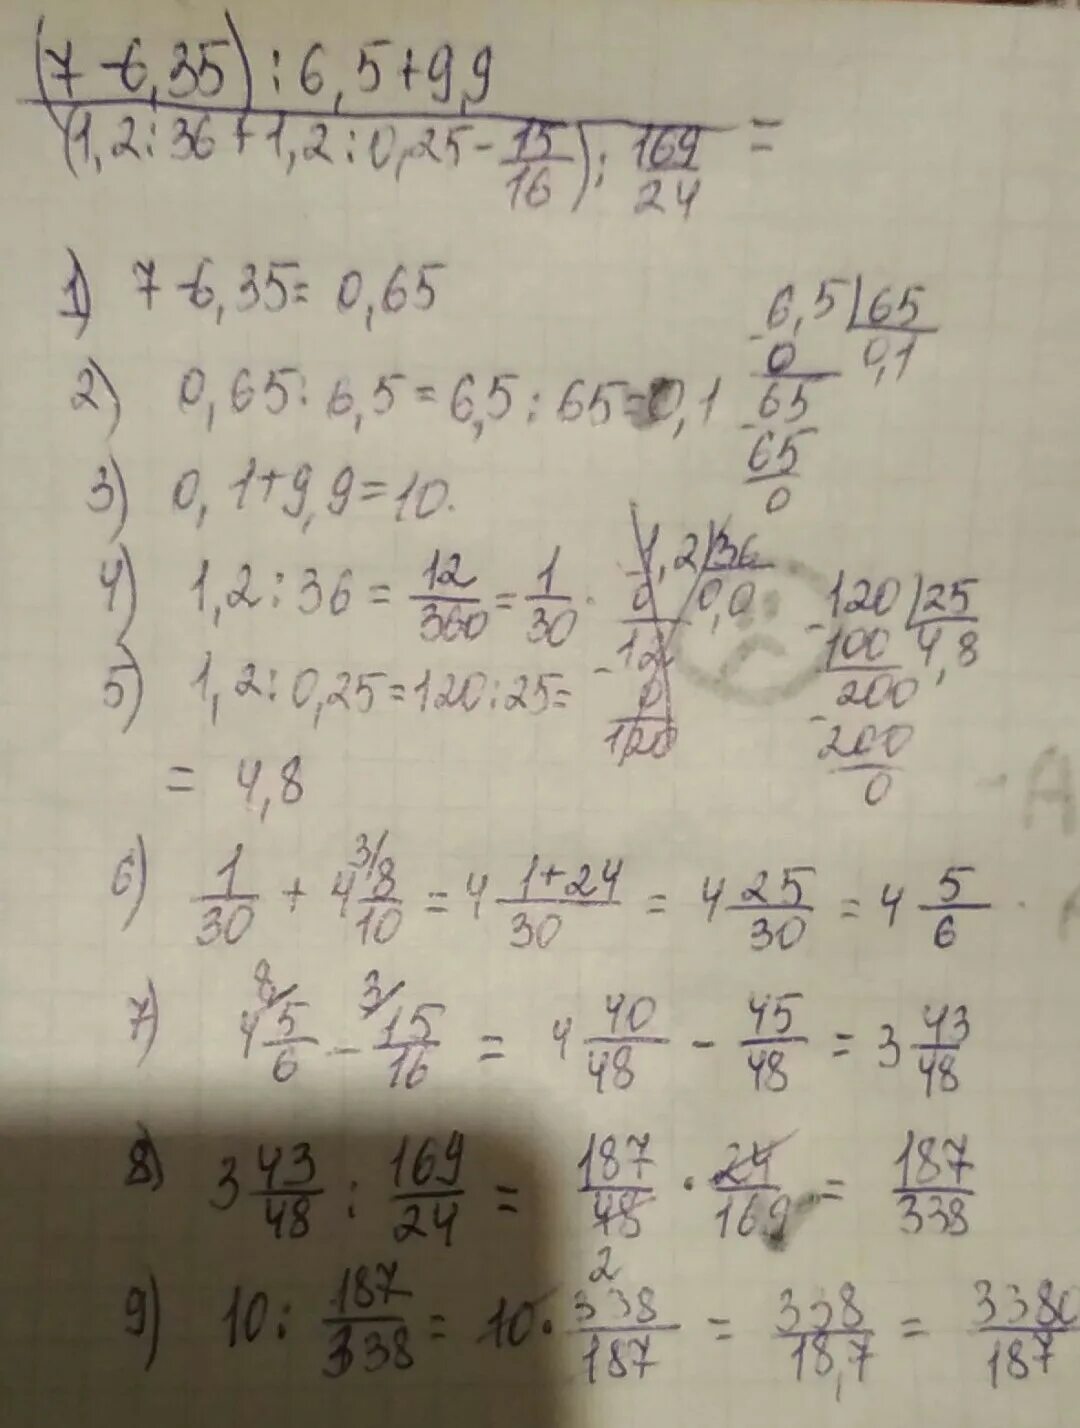 (7-6,35):6,5+9,9
(1,2:36+1,2:0,25-15/16):169/24 =
1) 7-6,35=0,65
2) 0,65:6,5=6,5:65=0,1
6,5|65
0 0,1
65
65
0
3) 0,1+9,9=10.
4) 1,2:36=12/360=1/30.
1,2|36
0 0,0
12
0
120
5) 1,2:0,25=120:25=
=4,8
120|25
100 4,8
200
200
0
6) 1/30+4 3/ 8/10=4 1+24/30=4 25/30=4 5/6
7) 4 8/ 5/6-3/ 15/16=4 40/48-45/48=3 43/48
8) 3 43/48:169/24=187/48·24/169=187/338
2
9) 10:187/338=10·338/187=338/18,7=3380/187